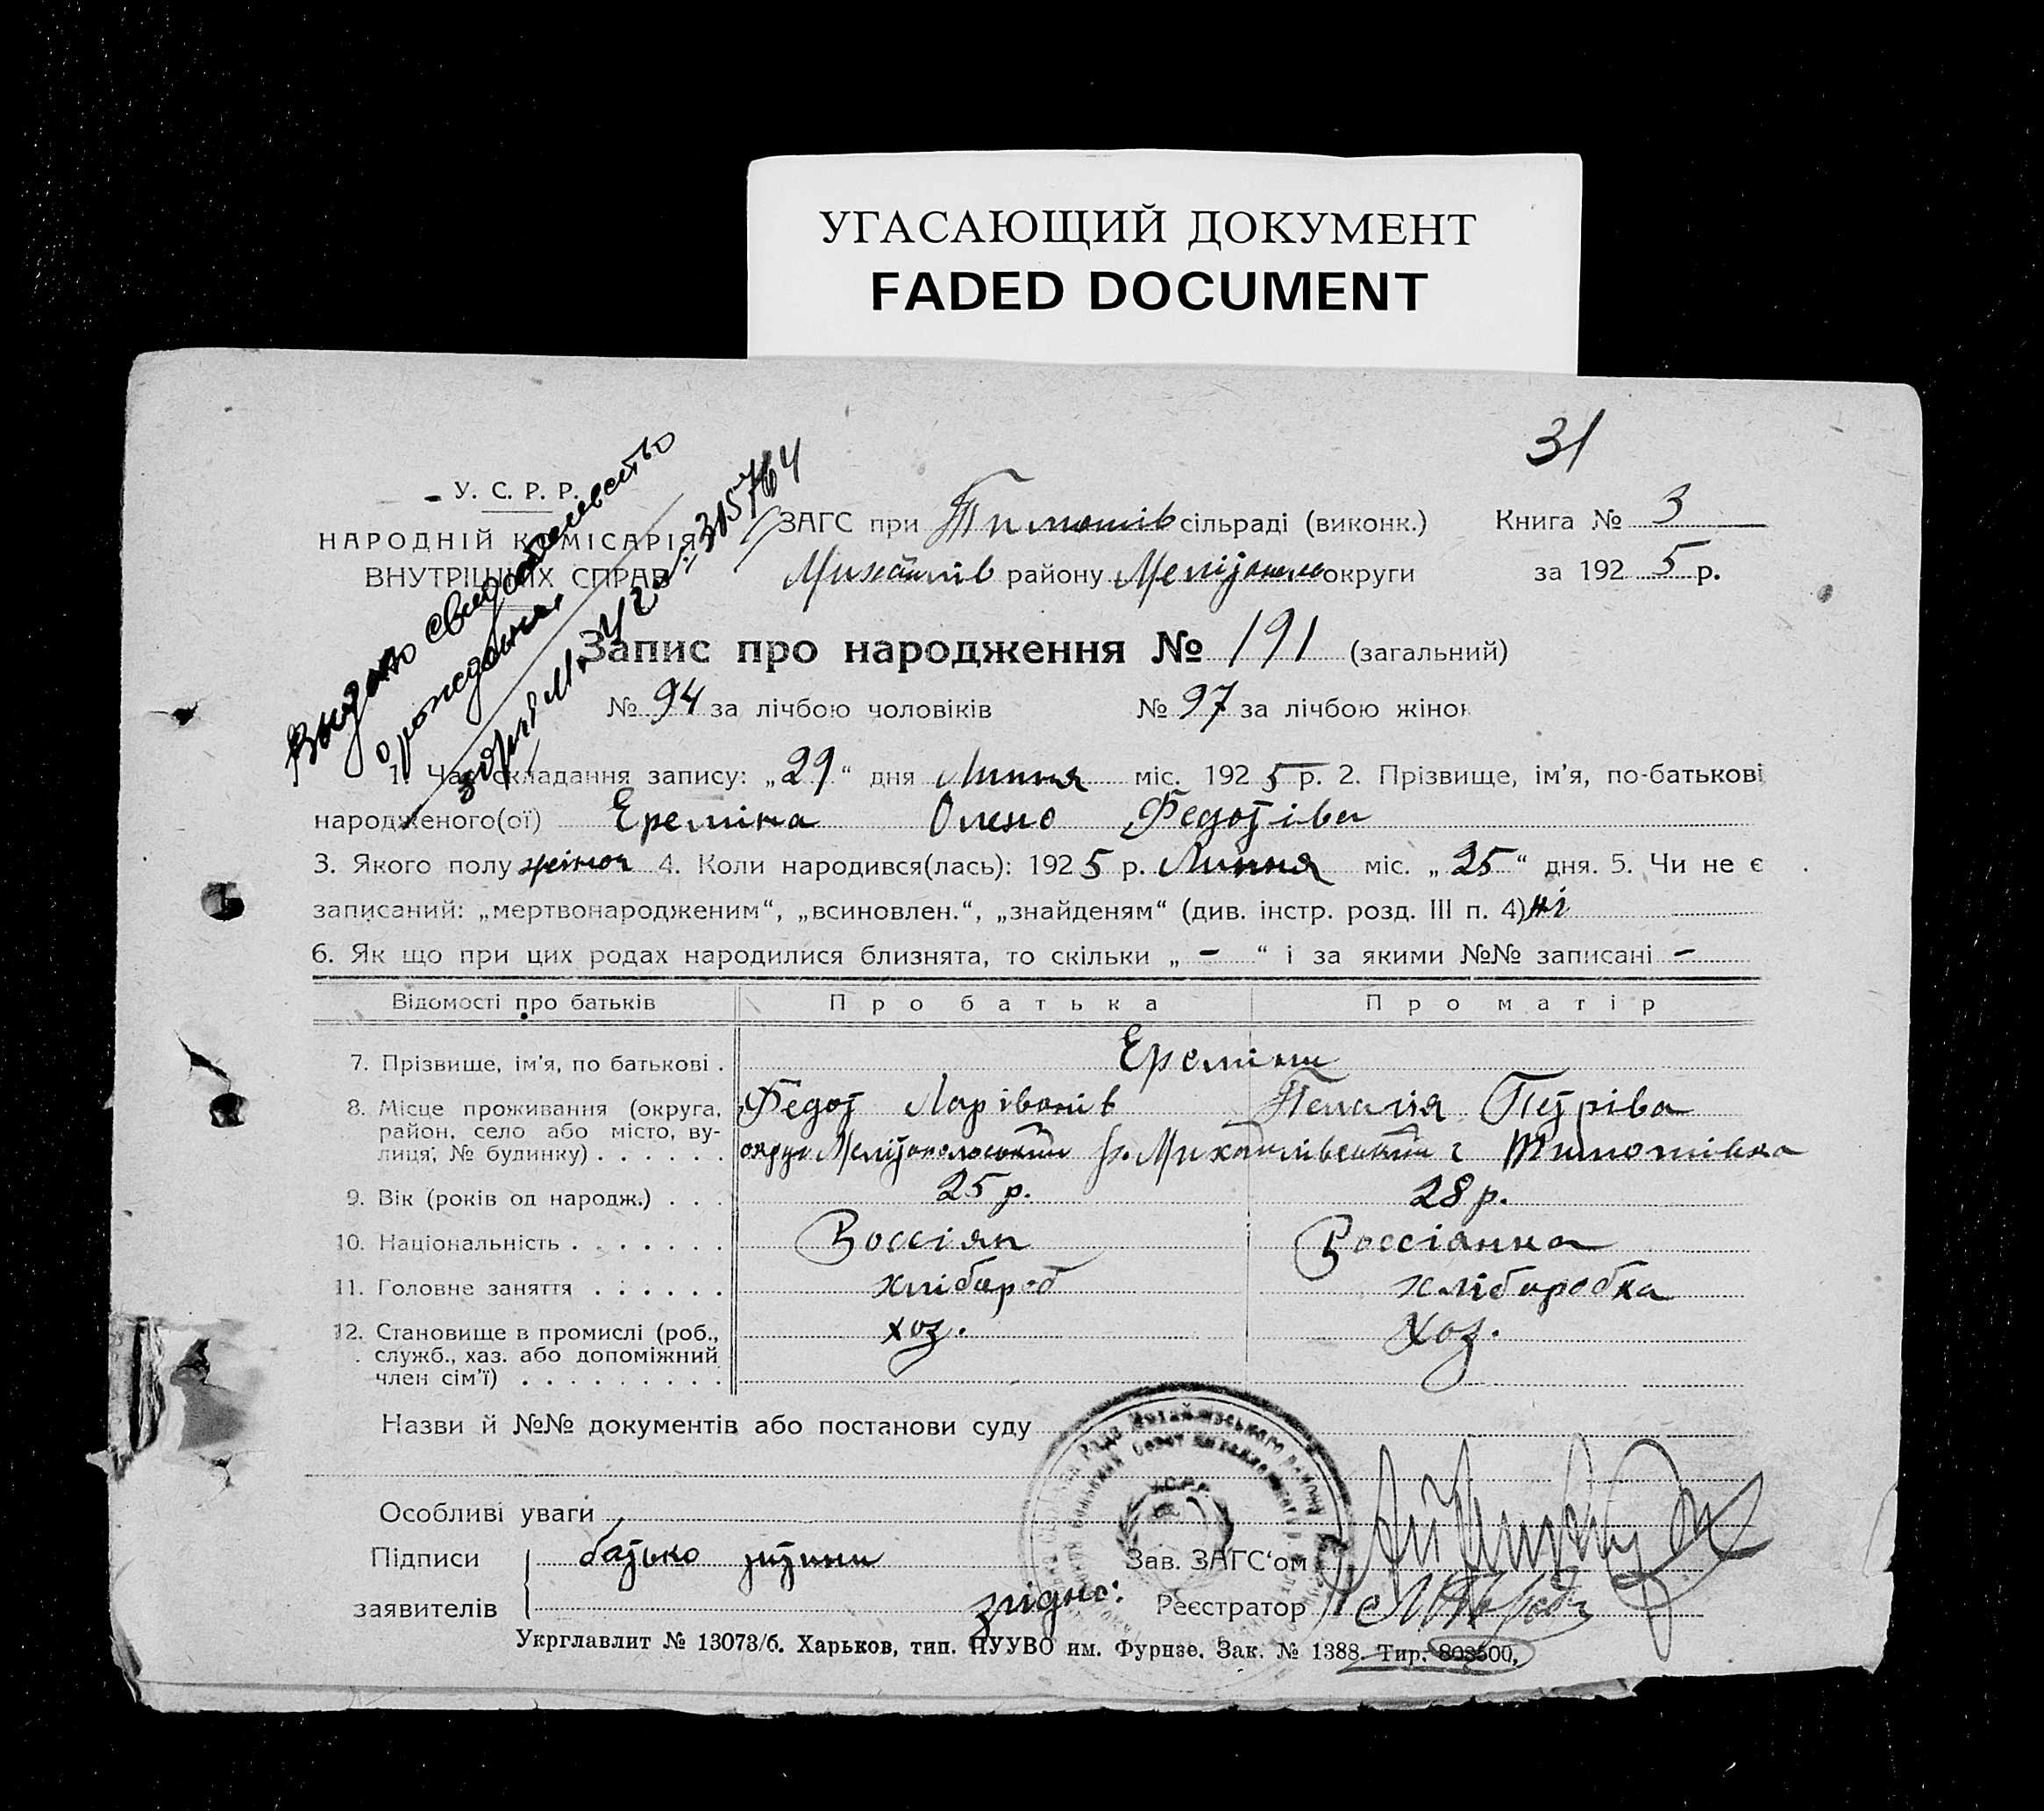 УГАСАЮЩИЙ ДОКУМЕНТ
FADED DOCUMENT
31
У. С. Р. Р.
НАРОДНІЙ КОМІСАРІЯТ
ВНУТРІШНІХ СПРАВ
Выдано свидетельство
о рождении
315764
ЗАГС при Тимошів сільраді (виконк.)
Книга № 3
Михайлів району Мелітополь округи
за 1925 р.
Запис про народження № 191 (загальний)
№ 94 за лічбою чоловіків № 97 за лічбою жінок
1. Час складання запису: „29“ дня Липня міс. 1925 р. 2. Прізвище, ім’я, по-батькові
народженого(ої) Ереміна Олена Федотівна
3. Якого полу жіноч 4. Коли народився(лась): 1925 р. Липня міс. „25“ дня. 5. Чи не є
записаний: „мертвонародженим“, „всиновлен.“, „знайденям“ (див. інстр. розд. III п. 4) ні
6. Як що при цих родах народилися близнята, то скільки „ – “ і за якими №№ записані –
Відомості про батьків Про батька Про матір
7. Прізвище, ім’я, по батькові . Ереміни
Федот Ларівонів Пелагія Петрівна
8. Місце проживання (округа,
район, село або місто, ву-
лиця, № будинку) . . . . . . округа Мелітопольський р. Михайлівський с Тимошівка
9. Вік (років од народж.) . . . 25 р. 28 р.
10. Національність . . . . . . . Россіян Россіянка
11. Головне заняття . . . . . . хлібороб хліборобка
12. Становище в промислі (роб.,
служб., хаз. або допоміжний
член сім’ї) . . . . . . . . . хоз. хоз.
Назви й №№ документів або постанови суду
Особливі уваги
Підписи батько
заявителів
Зав. ЗАГС‘ом
згідно: Реєстратор
Укрглавлит № 13073/б. Харьков, тип. ПУУВО им. Фурнзе. Зак. № 1388. Тир. 803500,